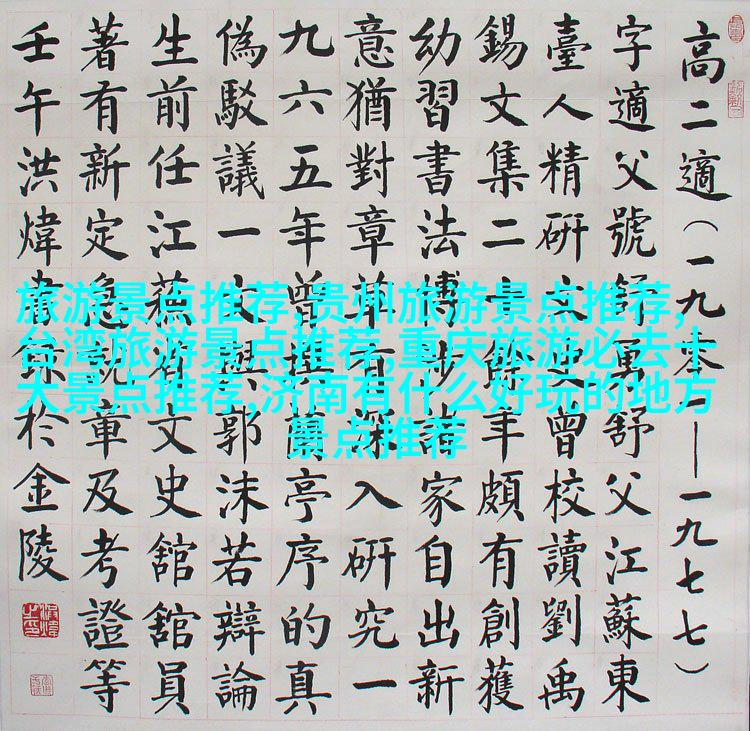 高二適（一九零——一九七七）
字適父號舒舒父江蘇東
臺人精研文史曾校讀劉禹
錫文集二十餘年頗有創獲
幼習書法博涉諸家自出新
意猶對章草有深入研究一
九六五年曾撰蘭亭序的真
偽駁議一文與郭沫若辯論
生前任江蘓省文史舘舘員
著有新定急就章及考證等
壬午洪煒書錄於金陵
旅游景点推荐,贵州旅游景点推荐,
台湾旅游景点推荐,重庆旅游必去十
大景点推荐,济南有什么好玩的地方
景点推荐